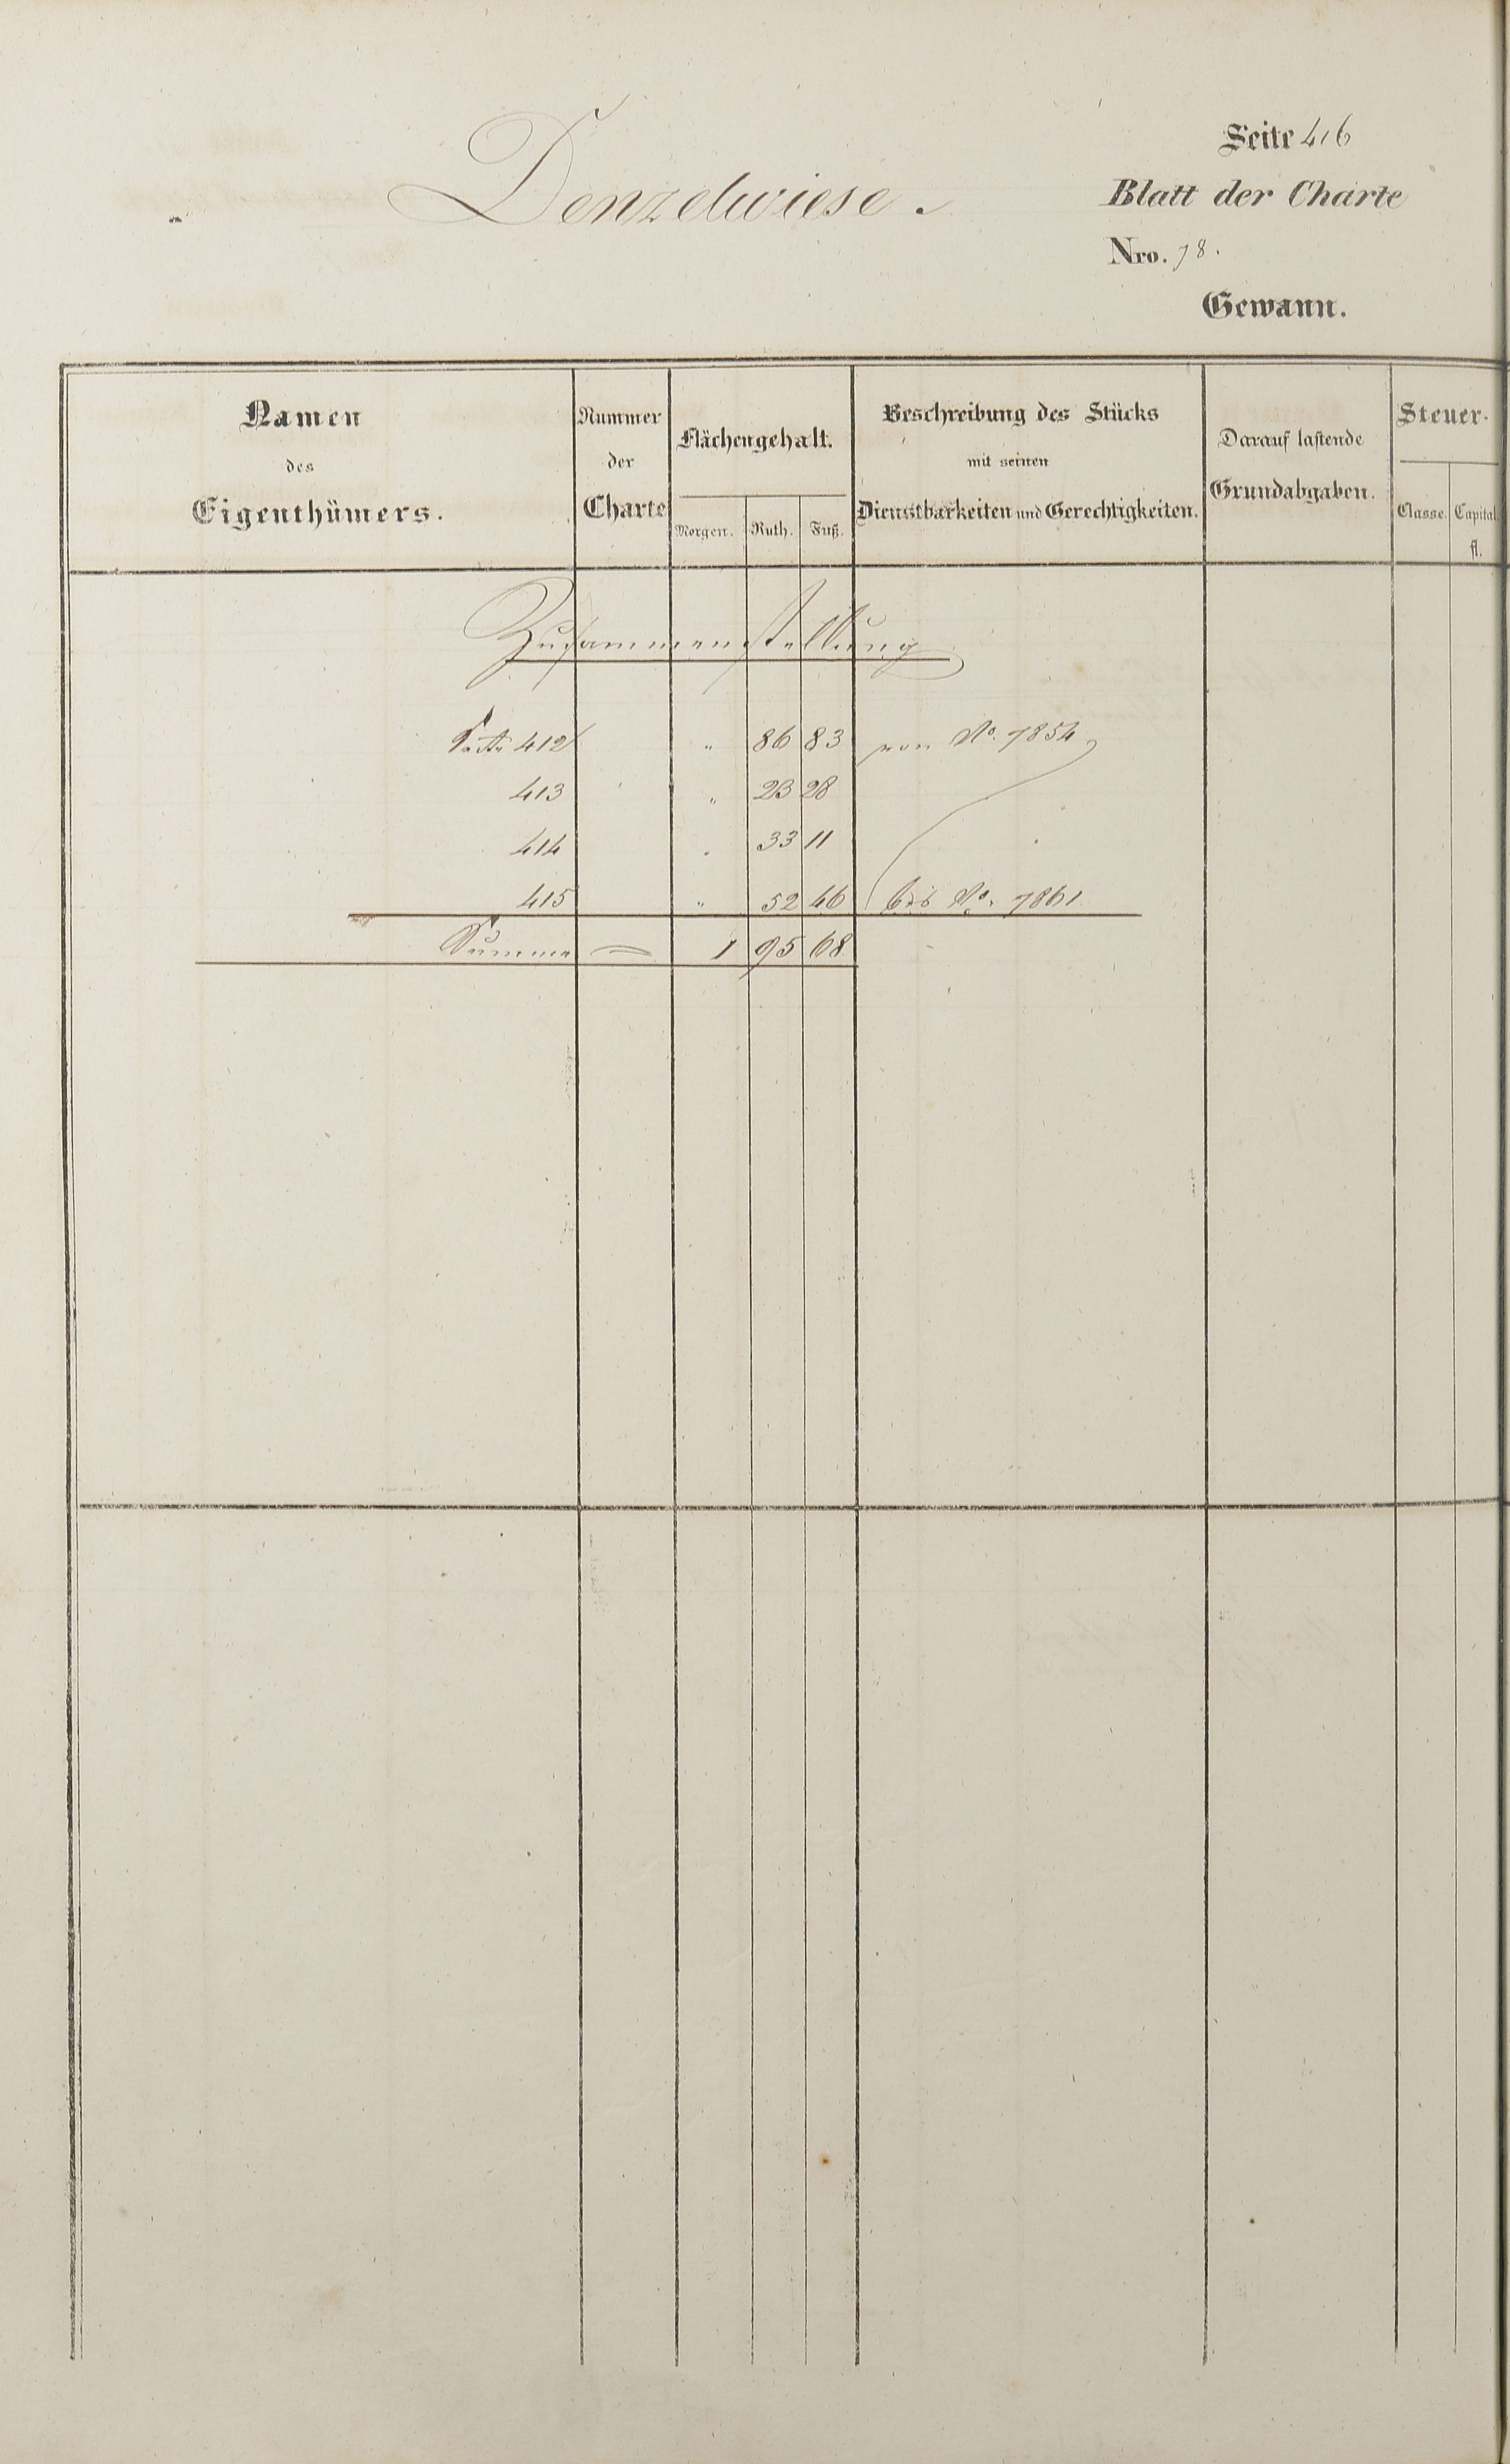 Seite 416
Denzelwiese.
Blatt der Charte
Nro. 78.
Gewann.
Namen
des
Eigenthümers.
Nummer
der
Charte
Flächengehalt.
Morgen. Ruth. Fuß.
Beschreibung des Stücks
mit seinen
Dienstbarkeiten und Gerechtigkeiten.
Darauf lastende
Grundabgaben.
Steuer-
Classe. Capital
fl.
Zusammenstellung
Seite 412 " 86 83 von No. 7854
413 " 23 28
414 " 33 11
415 " 52 46 bis No. 7861
Summa 1 95 68